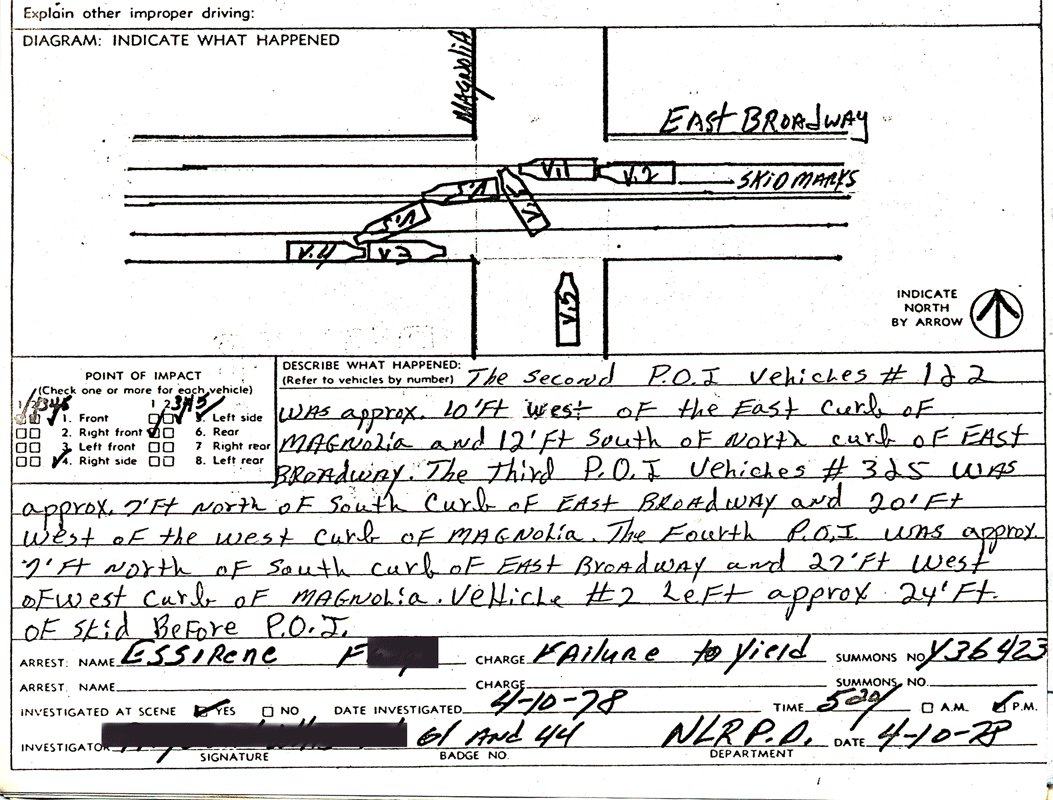 Explain other improper driving:
DIAGRAM: INDICATE WHAT HAPPENED
MAGNOLIA
EAST BROADWAY
V.1
V.2
SKID MARKS
V.5
V.5
V.4
V3
V.5
INDICATE
NORTH
BY ARROW
POINT OF IMPACT
(Check one or more for each vehicle)
1 2 3 4 5 1 2 3 4 5
1. Front 5. Left side
2. Right front 6. Rear
3. Left front 7 Right rear
4. Right side 8. Left rear
DESCRIBE WHAT HAPPENED:
(Refer to vehicles by number)
The second P.O.I Vehicles # 1&2
WAS approx. 10'Ft west OF the East Curb OF
MAGNOLIA and 12'Ft South OF North curb OF EAST
BROADWAY. The third P.O.I Vehicles # 3&5 WAS
approx. 7'Ft North OF South Curb OF EAST BROADWAY and 20'Ft
West of the west Curb OF MAGNOLIA. The Fourth P.O.I. WAS approx
7'Ft North OF South curb OF EAST BROADWAY and 27'Ft West
OF west Curb OF MAGNOLIA. Vehicle #2 Left approx 24'Ft.
OF SKid Before P.O.I.
ARREST: NAME ESSIRENE F CHARGE FAILURE to yield SUMMONS NO Y36423
ARREST: NAME CHARGE SUMMONS NO.
INVESTIGATED AT SCENE YES NO DATE INVESTIGATED 4-10-78 TIME 520 A.M. P.M.
INVESTIGATOR 61 AND 44 NLRP.D. DATE 4-10-78
SIGNATURE BADGE NO. DEPARTMENT